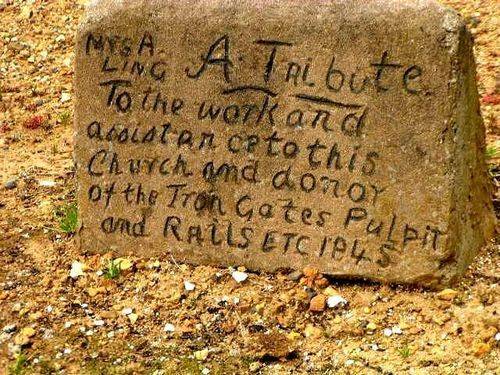 MR G A. LING
A Tribute.
To the work and
assistance to this
Church and donor
of the Iron Gates Pulpit
and Rails ETC 1945